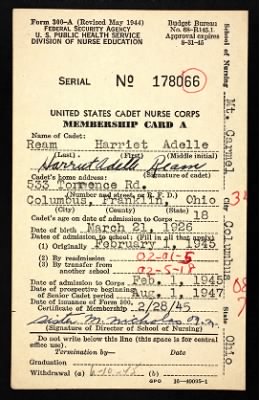 Form 300-A (Revised May 1944)
FEDERAL SECURITY AGENCY
U. S. PUBLIC HEALTH SERVICE
DIVISION OF NURSE EDUCATION
Budget Bureau
No. 68-R145.1.
Approval expires
8-31-45
SERIAL No 178066
UNITED STATES CADET NURSE CORPS
MEMBERSHIP CARD A
Name of Cadet:
Ream Harriet Adelle
(Last) (First) (Middle initial)
Harriet Adelle Ream
(Signature of cadet)
Cadet's home address:
533 Torrence Rd.
(Street number or R. F. D.)
Columbus, Franklin, Ohio
(City) (County) (State)
Cadet's age on date of admission to Corps 18
Date of birth March 21, 1926
Dates of admission to school: (Fill in all that apply)
(1) Originally February 1, 1945
(2) By readmission 02-01-5
(3) By transfer from
another school 02-5-18
Date of admission to Corps Feb. 1, 1945
Date of prospective beginning
of Senior Cadet period Aug. 1, 1947
Date of issuance of Form 300,
Certificate of Membership 2/28/45
Sister M. Nicholas
(Signature of Director of School of Nursing)
Do not write below this line (this space is for central
office use).
Termination by— Date
Graduation
Withdrawal (a) 6-10-45
GPO 16-40095-1
School of Nursing Mt. Carmel
City Columbus
State Ohio